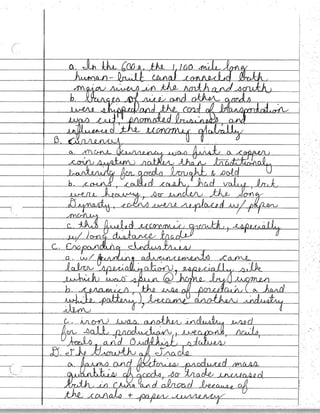 a. In the 600s, the 1,100 mile long
human-built canal connected both
major rivers in the north and south
b. Barges of rice and other goods
were shipped and the cost of transportation
was cut, promoted business, and
influenced the economy globally
B. Currency
a. money/currency was first a copper
coin system rather than traditionally
bartering for goods bought & sold
b. coins, called cash, had value, but
were heavy, so under the Song
Dynasty, coins were replaced w/ paper
money
c. this fueled economic growth, especially
w/ long distance trade
C. Expanding Industries
a. w/ farming advancements came
labor specialization, especially silk
which was spun @ home by women
b. ceramics, the use of porcelain (a hard
white pottery), became another industry
item
c. iron was another industry used
for salt production, weapons, nails,
tools, and Buddhist statues
D. The Growth of Trade
a. farms and factories produced mass
quantities of goods, so trade increased
both in China and abroad because of
the canals + paper currency